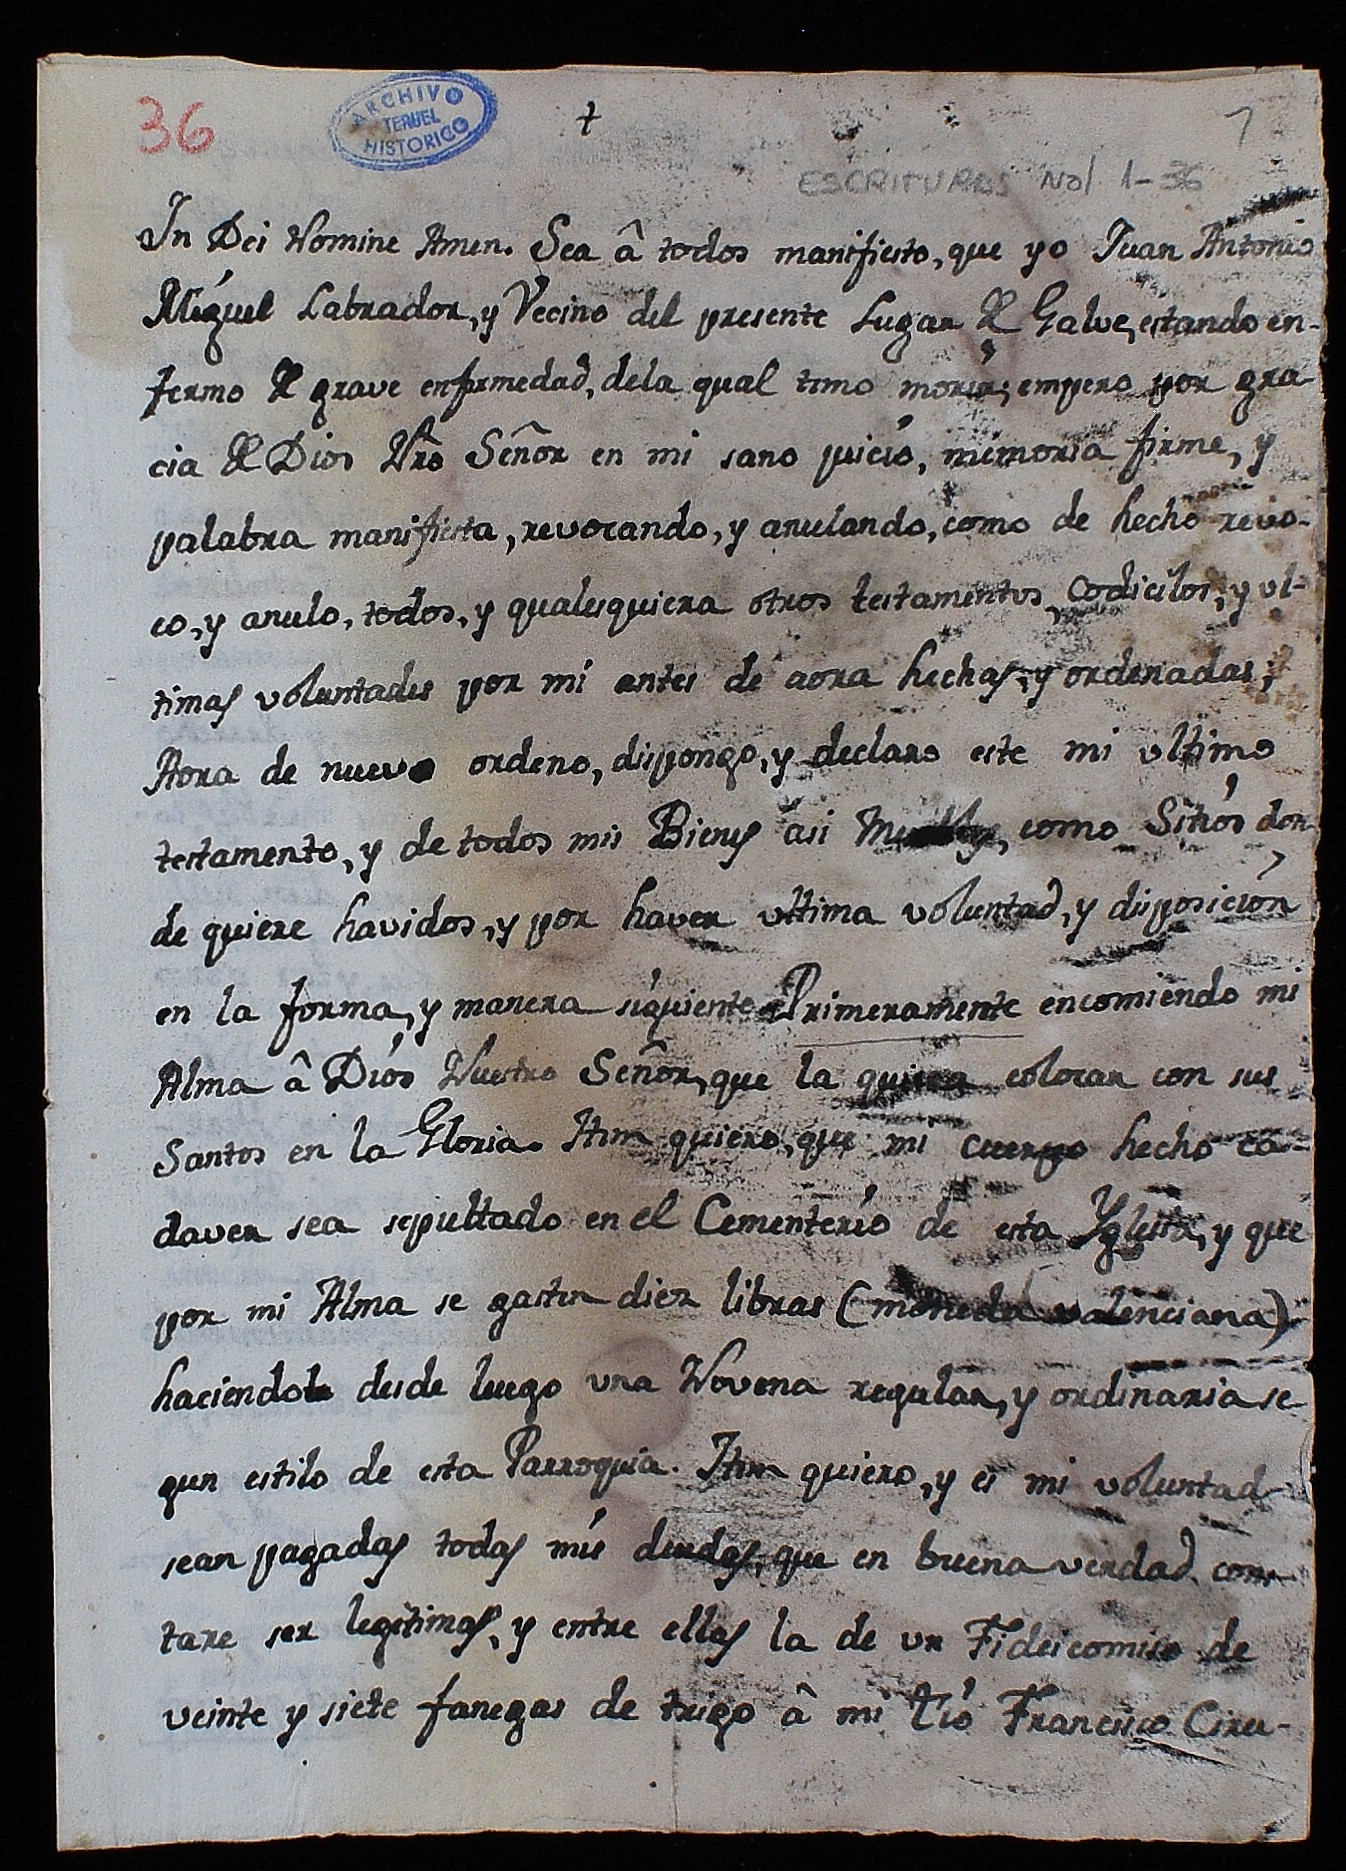 36
ARCHIVO
TERUEL
HISTORICO
†
1
ESCRITURAS Not 1-36
In Dei Nomine Amen. Sea â todos manifiesto, que yo Juan Antonio
Miguel Labrador, y Vecino del presente Lugar de Galve, estando en-
fermo de grave enfermedad, dela qual temo morir; empero por gra-
cia de Dios Nr̃o Señor en mi sano juicio, memoria firme, y
palabra manifiesta, revocando, y anulando, como de hecho revo-
co, y anulo, todos, y qualesquiera otros testamentos, Codicilos, y ul-
timas voluntades por mí antes de aora hechas, y ordenadas;
Aora de nuevo ordeno, dispongo, y declaro este mi ultimo
testamento, y de todos mis Bienes asi Muebles, como Sitios don-
de quiere havidos, y por haver ultima voluntad, y disposicion
en la forma, y manera siguiente Primeramente encomiendo mi
Alma â Dios Nuestro Señor, que la quiera colocar con sus
Santos en la Gloria. Itm quiero, que mi cuerpo hecho ca-
daver sea sepultado en el Cementerio de esta Yglesia, y que
por mi Alma se gasten diez libras (moneda valenciana)
haciendole desde luego una Novena regular, y ordinaria se-
gun estilo de esta Parroquia. Itm quiero, y es mi voluntad
sean pagadas todas mis deudas, que en buena verdad cons-
tare ser legitimas, y entre ellas la de un Fideicomiso de
veinte y siete fanegas de trigo â mi tio Francisco Ciru-